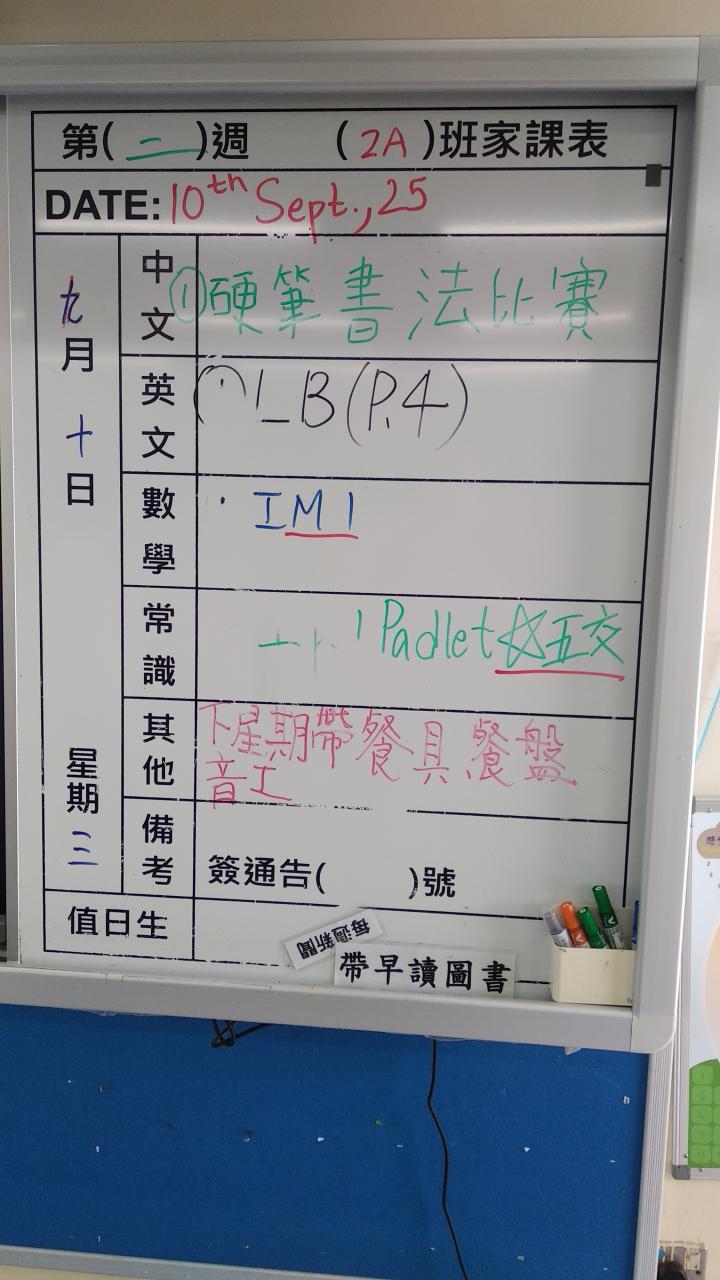 第(二)週 (2A)班家課表
DATE: 10th Sept., 25
九月十日 星期三
中文 ①硬筆書法比賽
英文 ① LB(P.4)
數學 · IM1
常識 1 Padlet☆五交
其他 下星期帶餐具,餐盤
音工
備考 簽通告( )號
值日生
每週新聞
帶早讀圖書